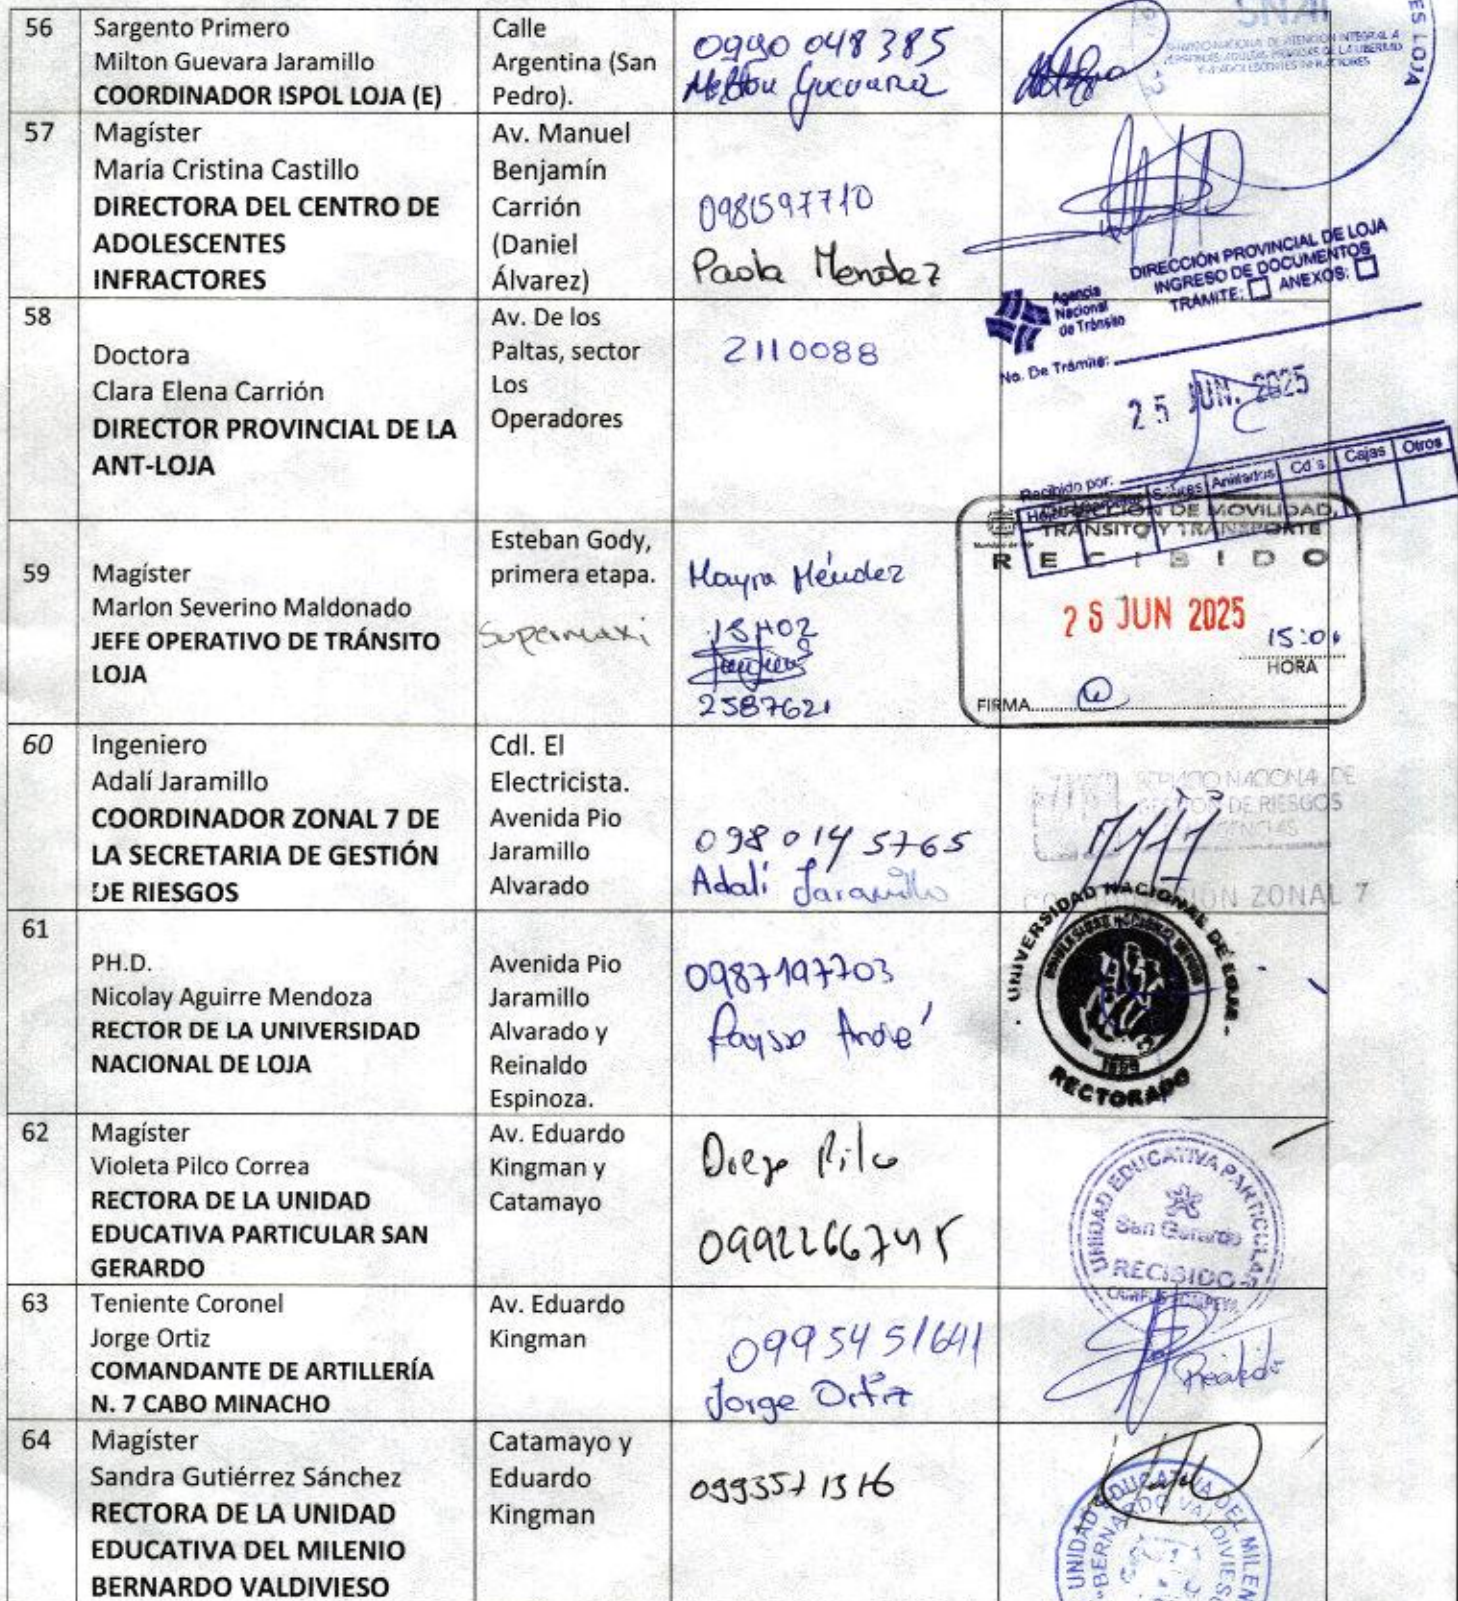 56
Sargento Primero
Milton Guevara Jaramillo
COORDINADOR ISPOL LOJA (E)
Calle
Argentina (San
Pedro).
0990 048 385
Milton Guevara
ES LOJA
SERVICIO NACIONAL DE ATENCIÓN INTEGRAL A
PERSONAS ADULTAS PRIVADAS DE LA LIBERTAD
Y A ADOLESCENTES INFRACTORES
57
Magíster
María Cristina Castillo
DIRECTORA DEL CENTRO DE
ADOLESCENTES
INFRACTORES
Av. Manuel
Benjamín
Carrión
(Daniel
Álvarez)
0981597710
Paola Mendez
58
Doctora
Clara Elena Carrión
DIRECTOR PROVINCIAL DE LA
ANT-LOJA
Av. De los
Paltas, sector
Los
Operadores
2110088
DIRECCIÓN PROVINCIAL DE LOJA
INGRESO DE DOCUMENTOS
TRÁMITE: ANEXOS:
Agencia
Nacional
de Tránsito
No. De Trámite:
25 JUN. 2025
Recibido por:
Anillados Cd's Cajas Otros
59
Magíster
Marlon Severino Maldonado
JEFE OPERATIVO DE TRÁNSITO
LOJA
Esteban Gody,
primera etapa.
Supermaxi
Mayra Méndez
15H02
2587621
DIRECCIÓN DE MOVILIDAD,
TRÁNSITO Y TRANSPORTE
RECIBIDO
JUN 2025
HORA
FIRMA
60
Ingeniero
Adalí Jaramillo
COORDINADOR ZONAL 7 DE
LA SECRETARIA DE GESTIÓN
DE RIESGOS
Cdl. El
Electricista.
Avenida Pio
Jaramillo
Alvarado
098 014 5765
Adalí Jaramillo
SERVICIO NACIONAL DE
GESTIÓN DE RIESGOS
COORDINACIÓN ZONAL 7
61
PH.D.
Nicolay Aguirre Mendoza
RECTOR DE LA UNIVERSIDAD
NACIONAL DE LOJA
Avenida Pio
Jaramillo
Alvarado y
Reinaldo
Espinoza.
0987197703
André
UNIVERSIDAD NACIONAL DE LOJA
1859
RECTORADO
62
Magíster
Violeta Pilco Correa
RECTORA DE LA UNIDAD
EDUCATIVA PARTICULAR SAN
GERARDO
Av. Eduardo
Kingman y
Catamayo
Diego Pilco
0992266745
UNIDAD EDUCATIVA PARTICULAR
San Gerardo
RECIBIDO
63
Teniente Coronel
Jorge Ortiz
COMANDANTE DE ARTILLERÍA
N. 7 CABO MINACHO
Av. Eduardo
Kingman
0995451641
Jorge Ortiz
64
Magíster
Sandra Gutiérrez Sánchez
RECTORA DE LA UNIDAD
EDUCATIVA DEL MILENIO
BERNARDO VALDIVIESO
Catamayo y
Eduardo
Kingman
0993571316
UNIDAD EDUCATIVA DEL MILEN
"BERNARDO VALDIVIESO